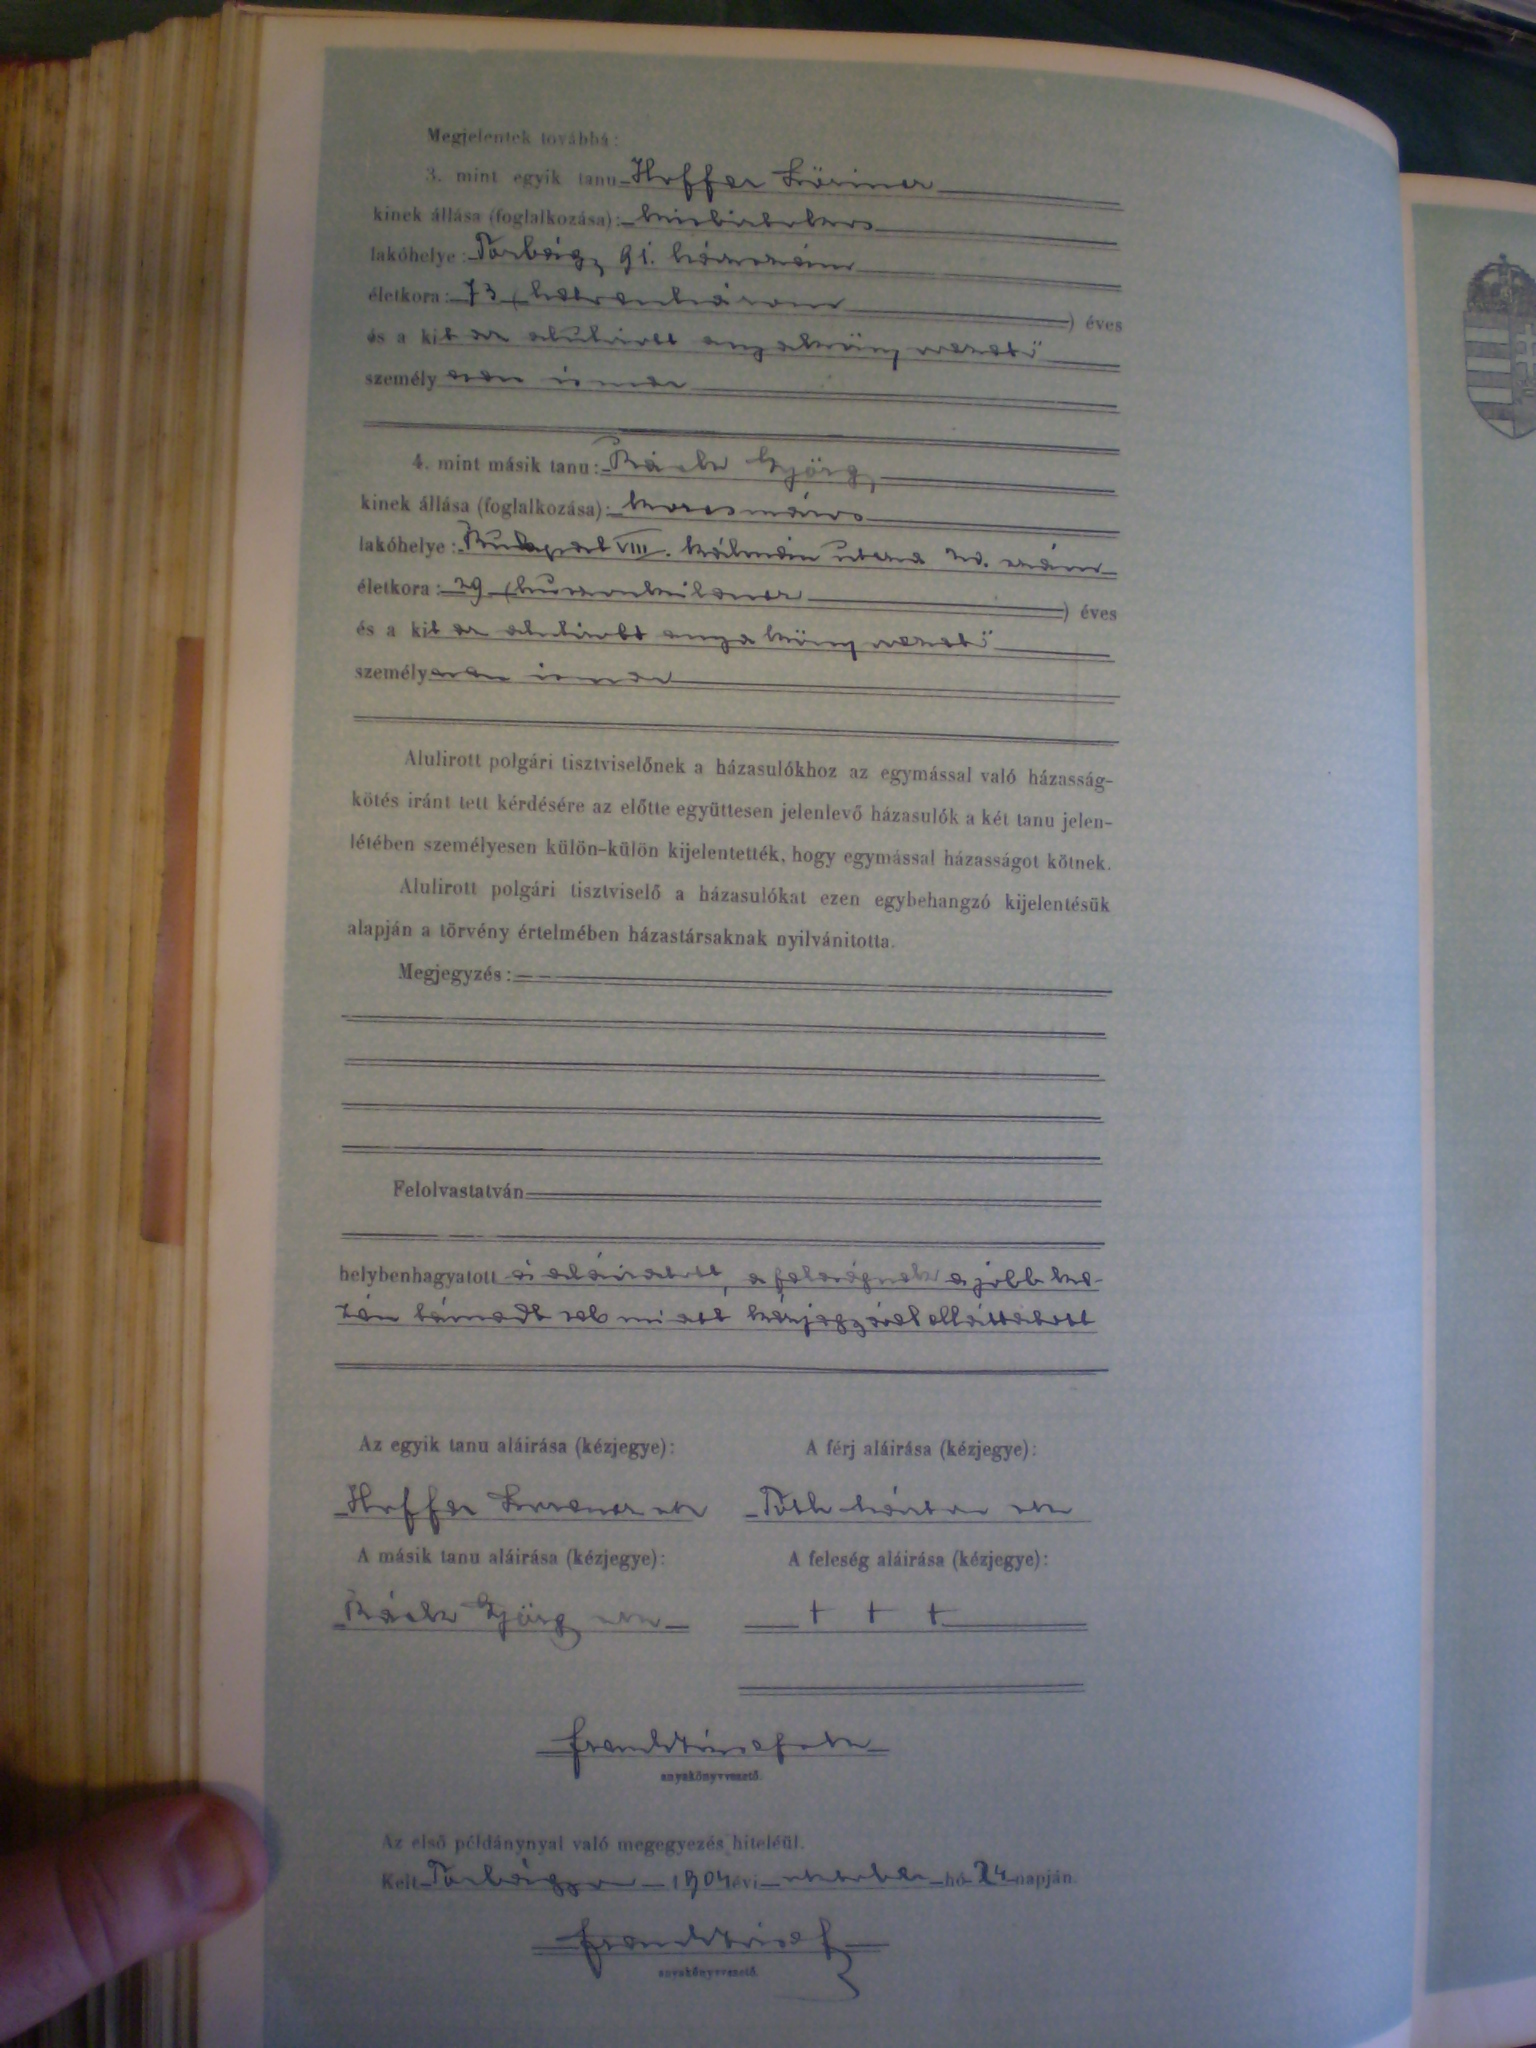 Megjelentek továbbá:
3. mint egyik tanu Hoffer Lörincz
kinek állása (foglalkozása): kisbirtokos
lakóhelye: Torbágy 91. házszám
életkora: 73 (hetvenhárom) éves
és a kit az alulirott anyakönyvvezető
személyesen ismer
4. mint másik tanu: György
kinek állása (foglalkozása): korcsmáros
lakóhelye: Budapest VIII. Kálmán utcza szám
életkora: 29 (huszonkilencz) éves
és a kit az alulirott anyakönyvvezető
személyesen ismer
Alulirott polgári tisztviselőnek a házasulókhoz az egymással való házasság-
kötés iránt tett kérdésére az előtte együttesen jelenlevő házasulók a két tanu jelen-
létében személyesen külön-külön kijelentették, hogy egymással házasságot kötnek.
Alulirott polgári tisztviselő a házasulókat ezen egybehangzó kijelentésük
alapján a törvény értelmében házastársaknak nyilvánitotta.
Megjegyzés:
Felolvastatván
helybenhagyatott és aláiratott, a feleségnek a jobb ke-
zén támadt seb miatt kézjegyével elláttatott
Az egyik tanu aláirása (kézjegye): A férj aláirása (kézjegye):
Hoffer Lörencz sk Tóth sk
A másik tanu aláirása (kézjegye): A feleség aláirása (kézjegye):
György sk + + +
anyakönyvvezető.
Az első példánynyal való megegyezés hiteléül.
Kelt Torbágyon 1904 évi október hó 24 napján
anyakönyvvezető.